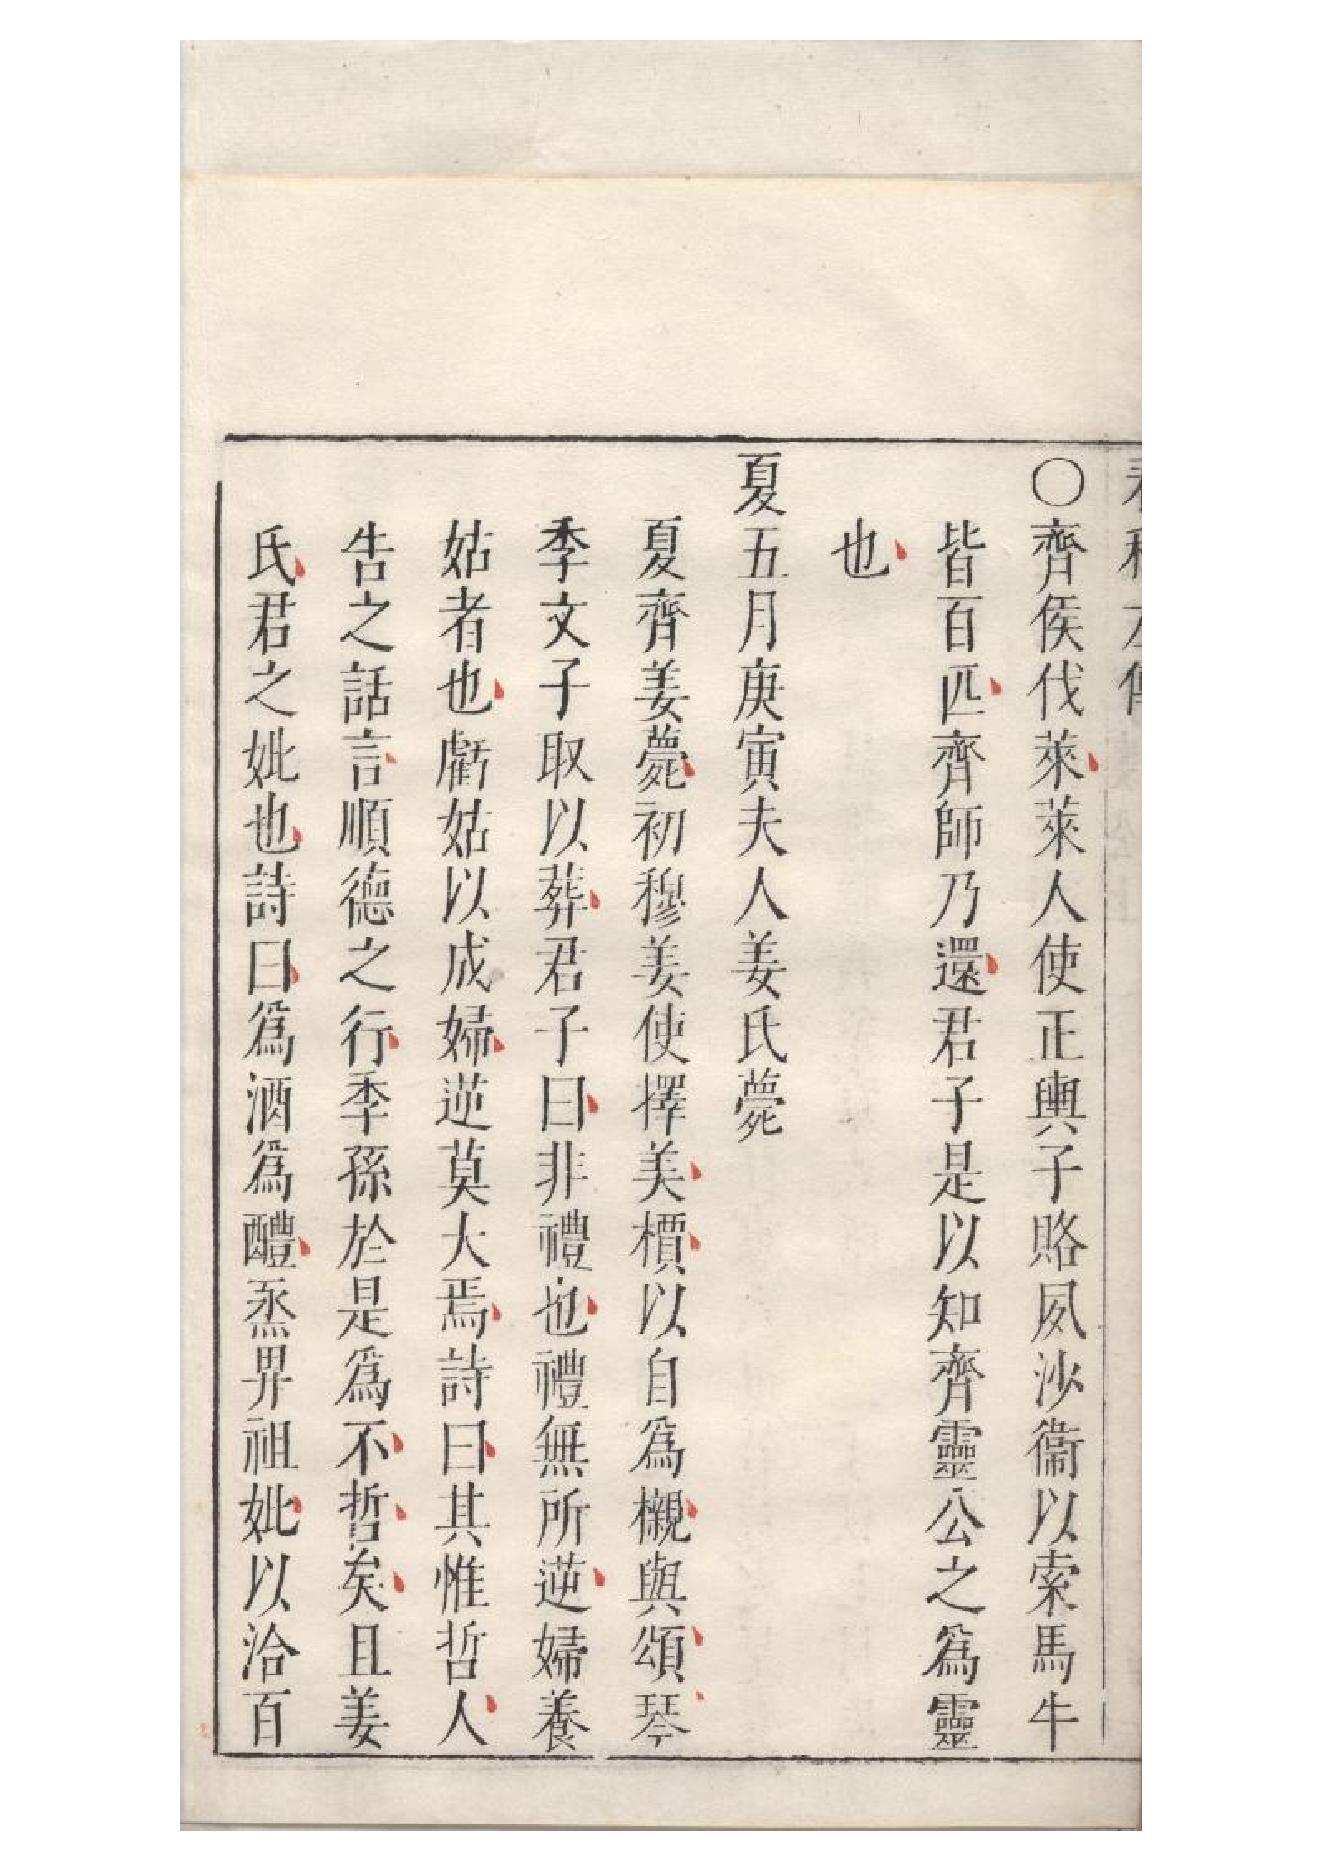 春秋左傳
〇齊侯伐萊萊人使正輿子賂夙沙衞以索馬牛
皆百匹齊師乃還君子是以知齊靈公之爲靈
也
夏五月庚寅夫人姜氏薨
夏齊姜薨初穆姜使擇美檟以自爲櫬與頌琴
季文子取以葬君子曰非禮也禮無所逆婦養
姑者也虧姑以成婦逆莫大焉詩曰其惟哲人
告之話言順德之行季孫於是爲不哲矣且姜
氏君之妣也詩曰爲酒爲醴烝畀祖妣以洽百